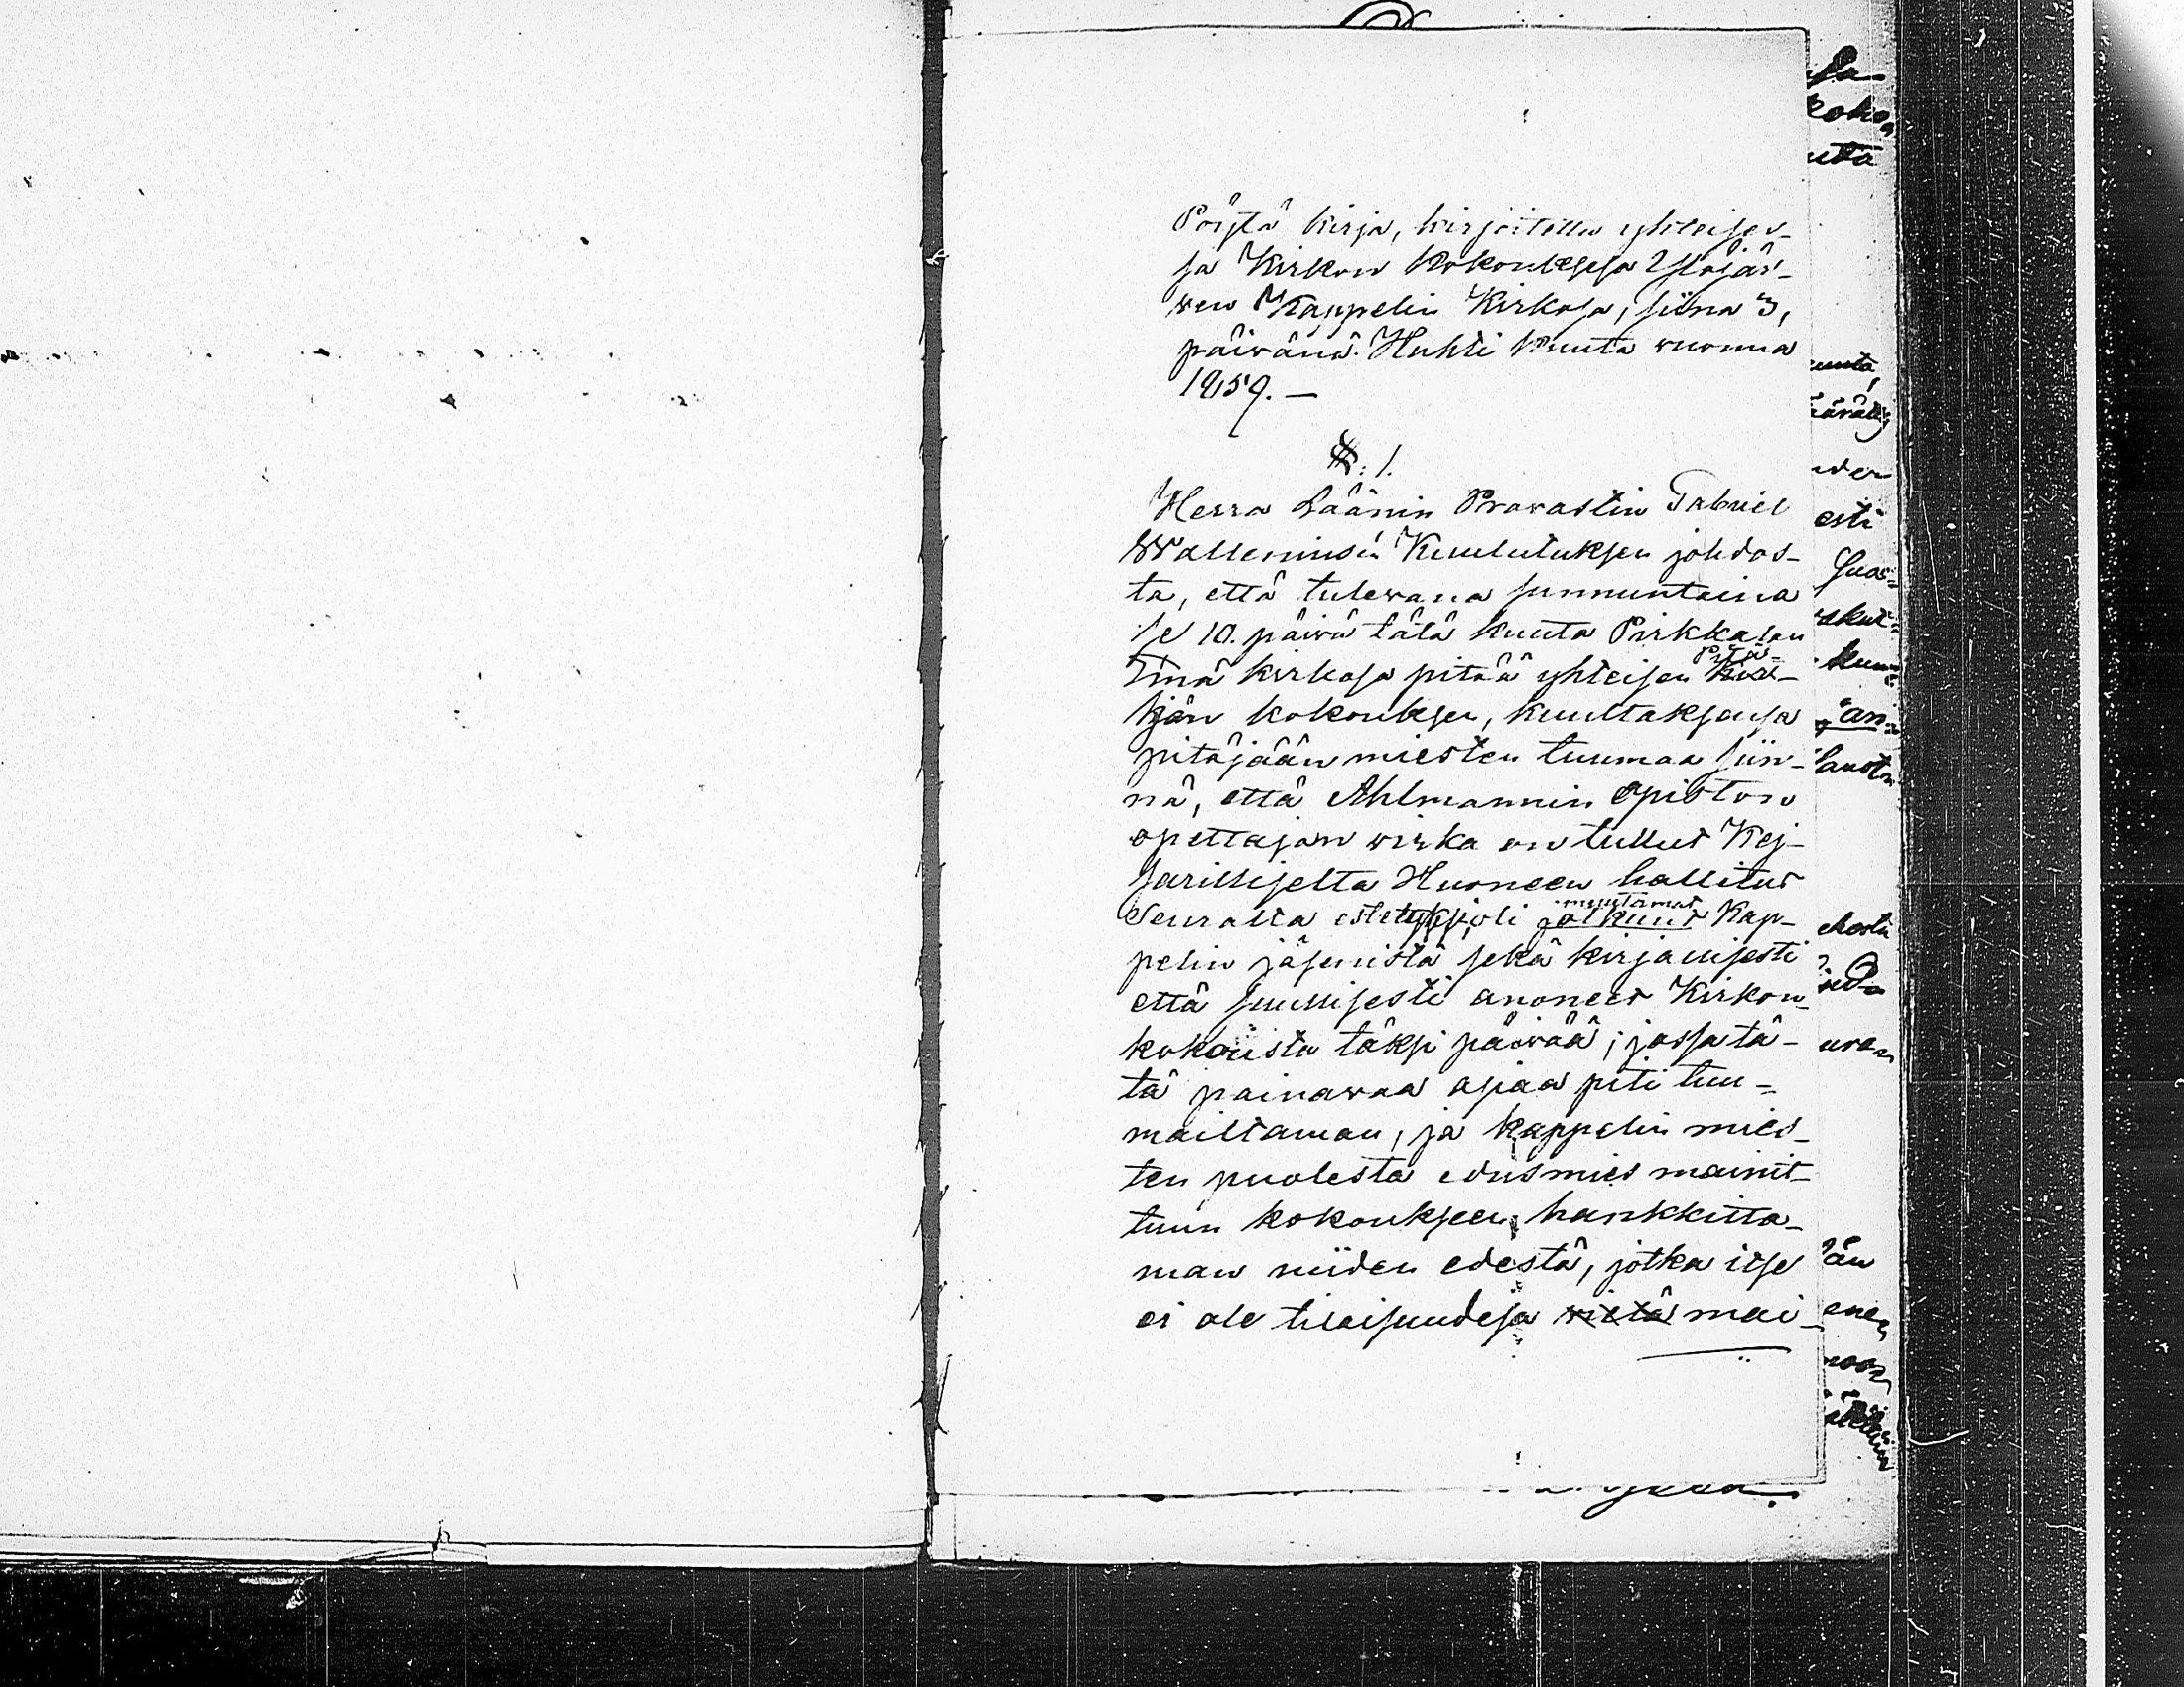 Pöytä kirja, kirjoitettu yhteises-
sa Kirkon Kokouksesa Ylöjär-
wen Kappelin Kirkosa, siina 3,
päivänä. Huhti kuuta vuonna
1859. —
§: 1.
Herra Läänin Prowastin Gabriel
Walleniusen Kuulutuksen johdos-
ta, että tulevana sunnuntaina
se 10. päivä tätä kuuta Pirkkalan
Emä kirkosa pitää yhteisen Pitä-
jän kokouksen, kuultaksensa
pitäjään miesten tuumaa siin-
nä, että Ahlmannin Opiston
opettajan virka on tullut Kej-
sarilliselta Huoneen hallitus
Seuralta oli muutamat jotkuut Kap-
pelin jäsenistä sekä kirjallisesti
että suullisesti anoneet Kirkon
kokousta täksi päivää; jossa tä-
tä painavaa asiaa piti tuu-
mailtaman, ja kappelin mies-
ten puolesta edusmies mainit-
tuun kokoukseen, hankkitta-
man niiden edestä, jotka itse
ei ole tilaisuudesa mai-
sa-
koko
uta
uuta,
ärätty
uden
esti
suos-
kuu-
än